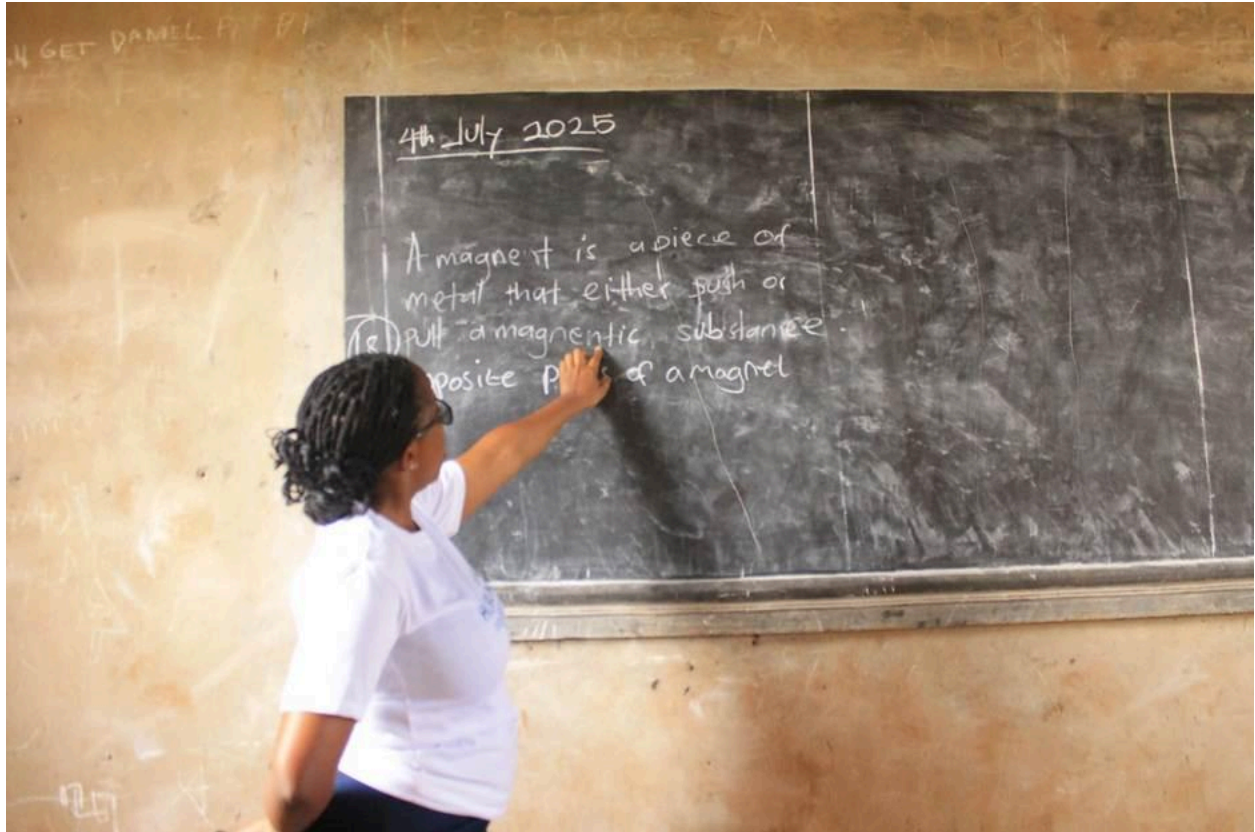 GET DANIEL
4th July 2025
A magnent is a piece of
metal that either push or
(8) pull a magnentic substance.
posite of a magnet